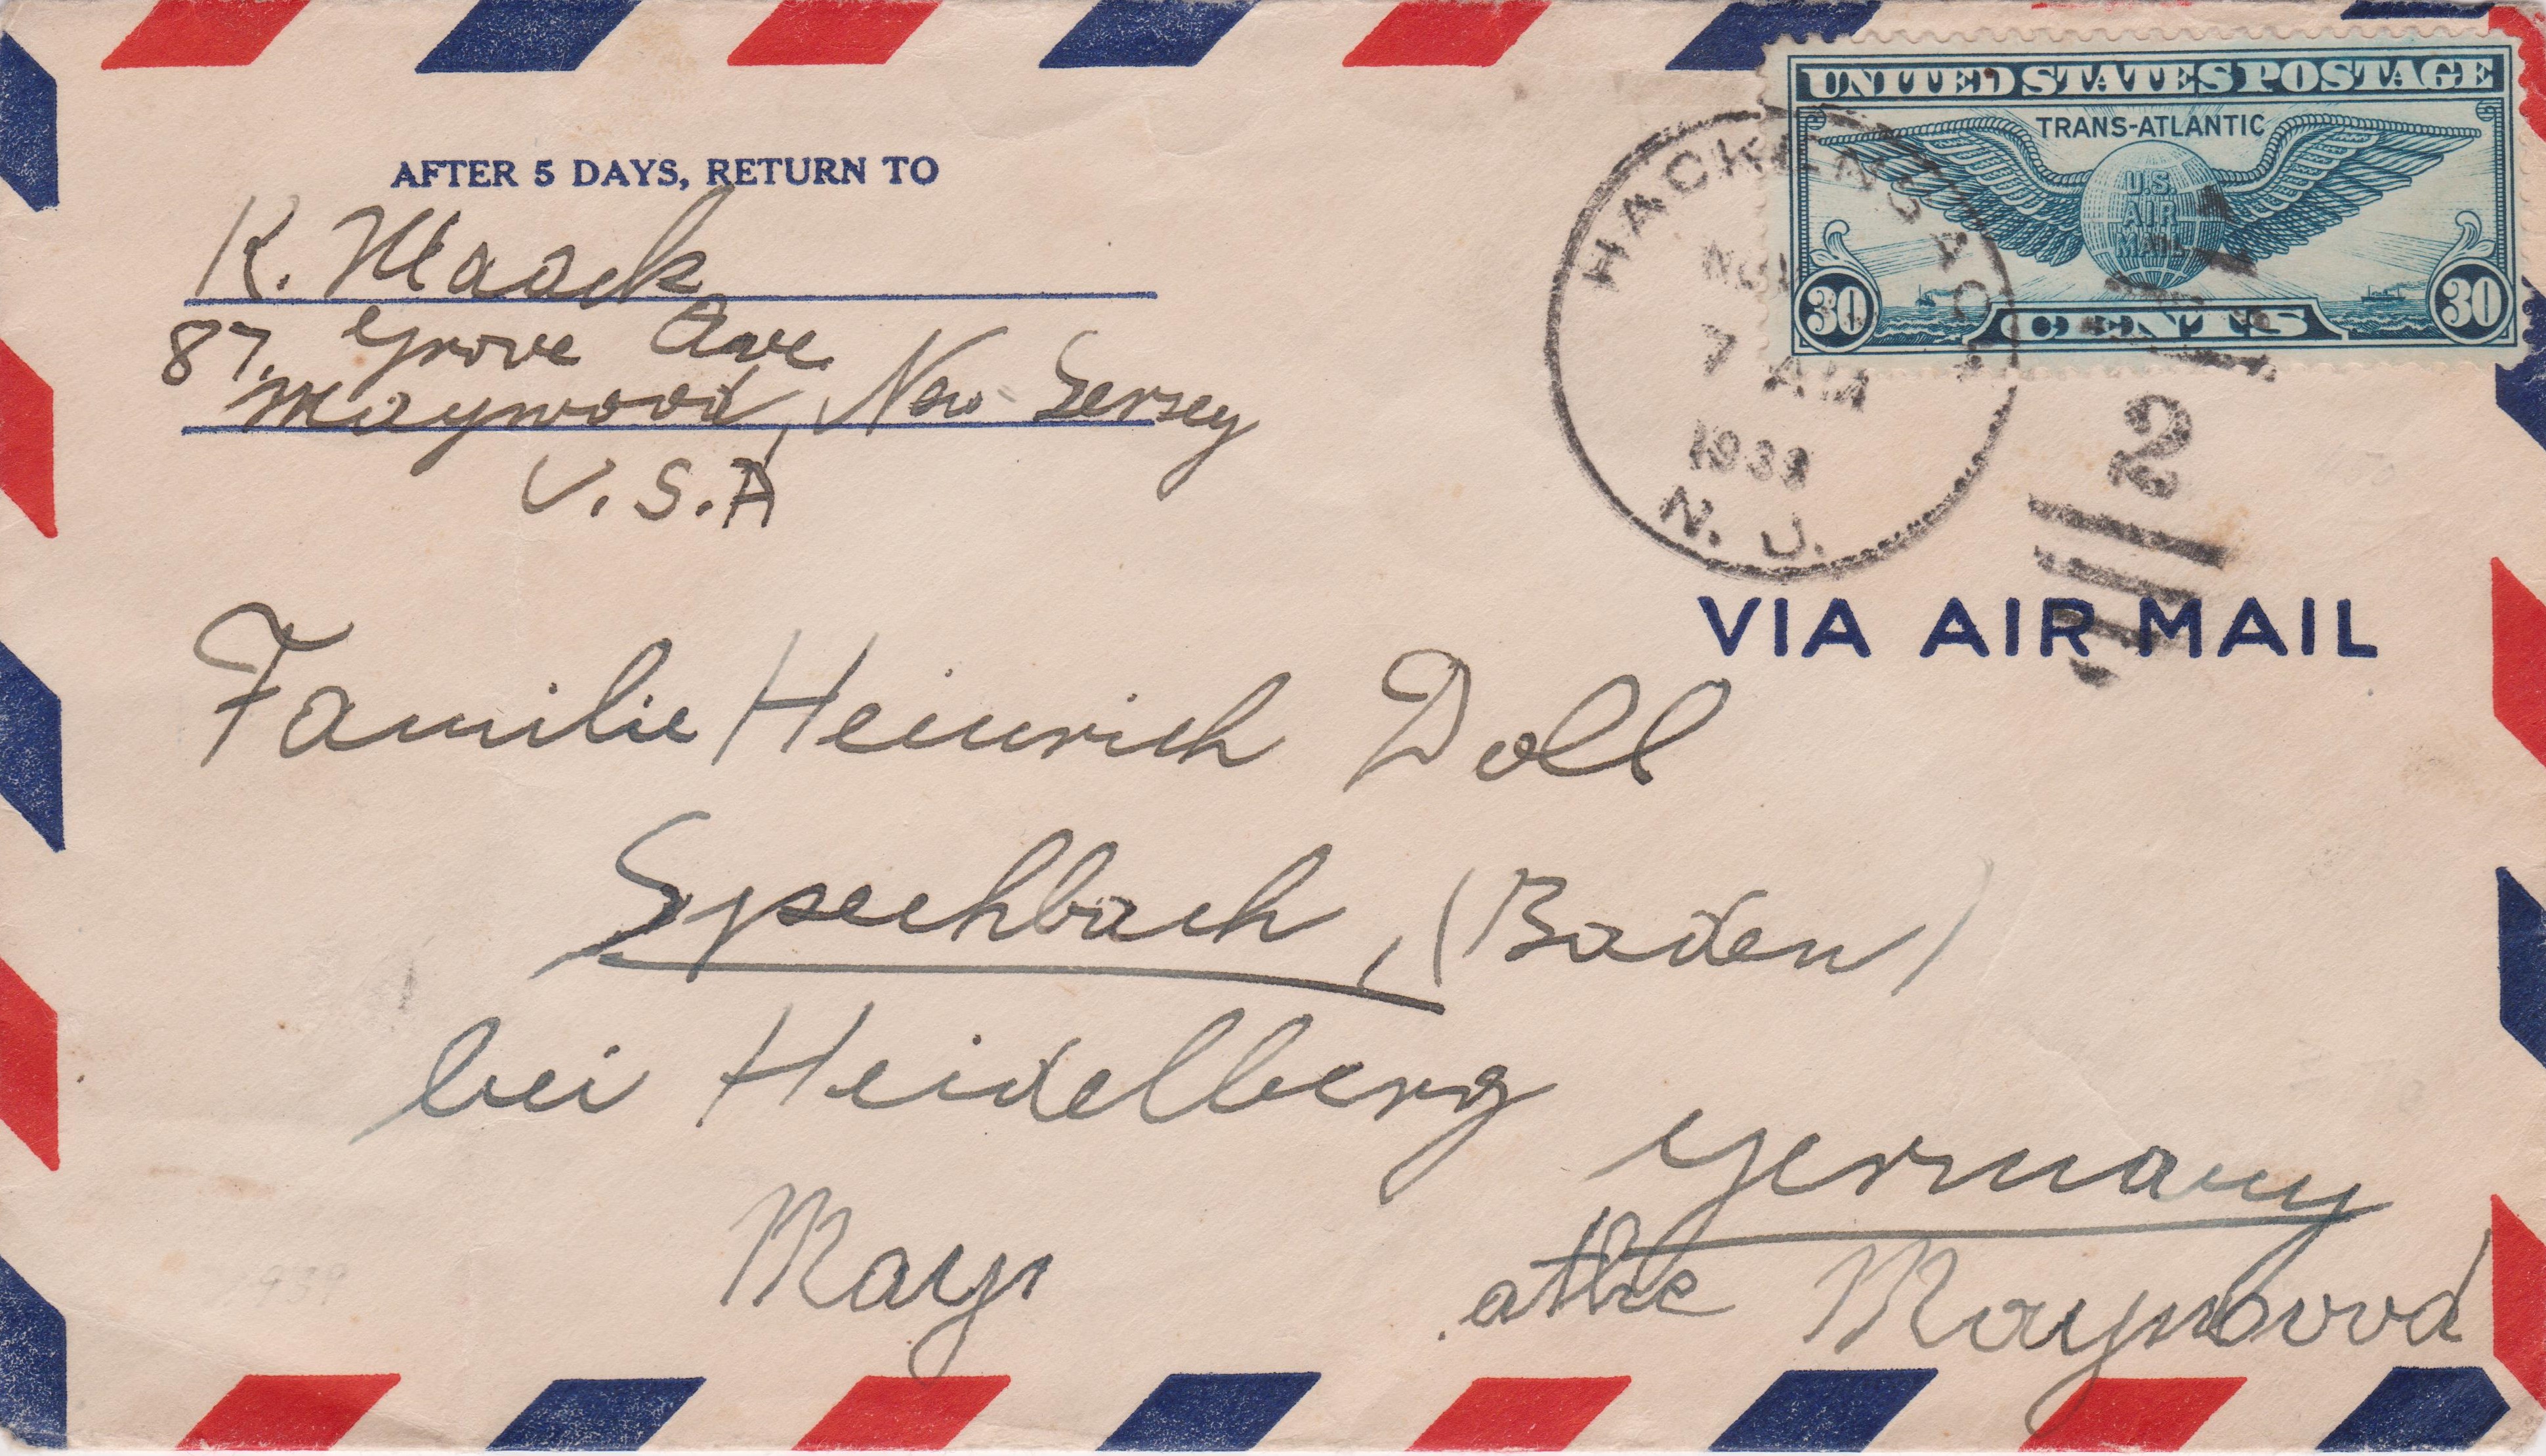 AFTER 5 DAYS, RETURN TO
K. Maack
87, Grove Ave
Maywood, New Jersey
U.S.A
UNITED STATES POSTAGE
TRANS-ATLANTIC
U.S.
AIR
MAIL
30 CENTS 30
HACKENSACK
7 AM
N. J.
2
VIA AIR MAIL
Familie Heinrich Doll
Spechbach, (Baden)
bei Heidelberg
Germany
Maywood
1939